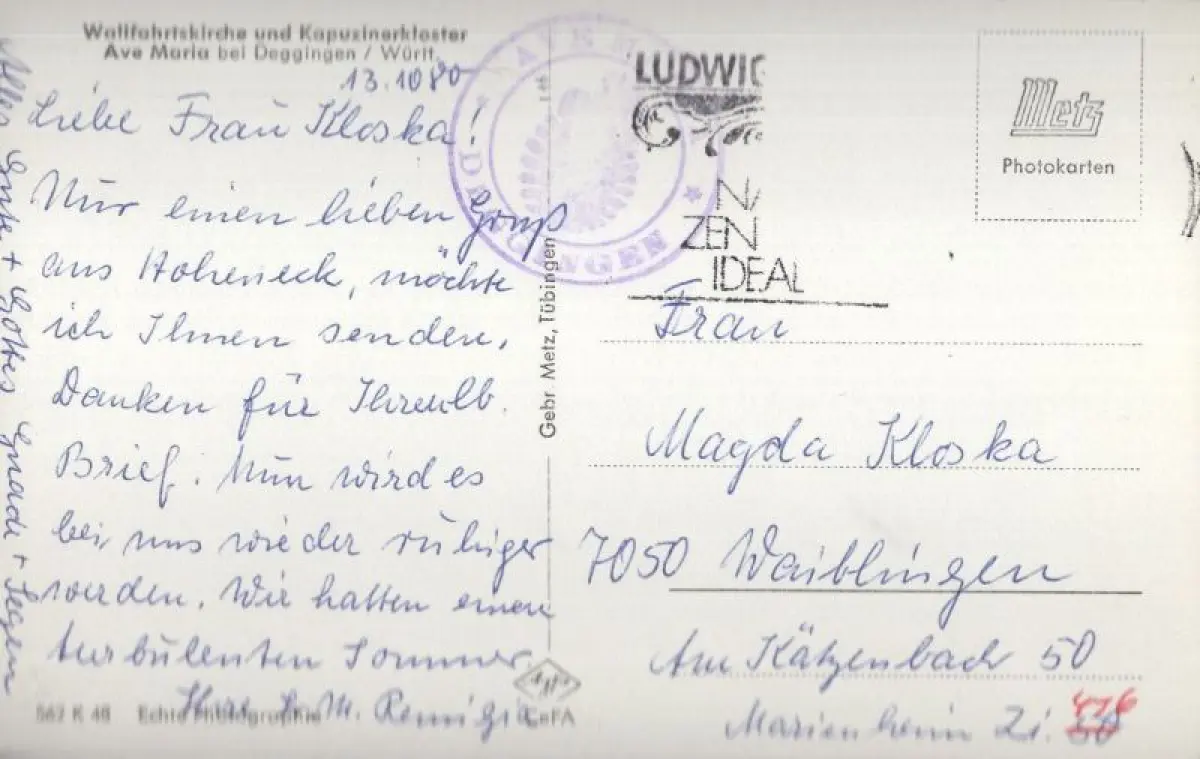 Wallfahrtskirche und Kapuzinerkloster
Ave Maria bei Deggingen / Württ.
13.10 80
Liebe Frau Kloska!
Nur einen lieben Gruß
aus Hoheneck, möchte
ich Ihnen senden.
Danken für Ihren lb.
Brief. Nun wird es
bei uns wieder ruhiger
werden. Wir hatten einen
turbulenten Sommer.
Ihre S. M. Remigia
Alles Gute + Gottes Gnade + Segen
562 K 48 Echte Photographie
CeFA
Gebr. Metz, Tübingen
AVE M
DEGGINGEN
LUDWIG
ZEN
IDEAL
Metz
Photokarten
Frau
Magda Kloska
7050 Waiblingen
Am Kätzenbach 50
Marienheim Zi. 416